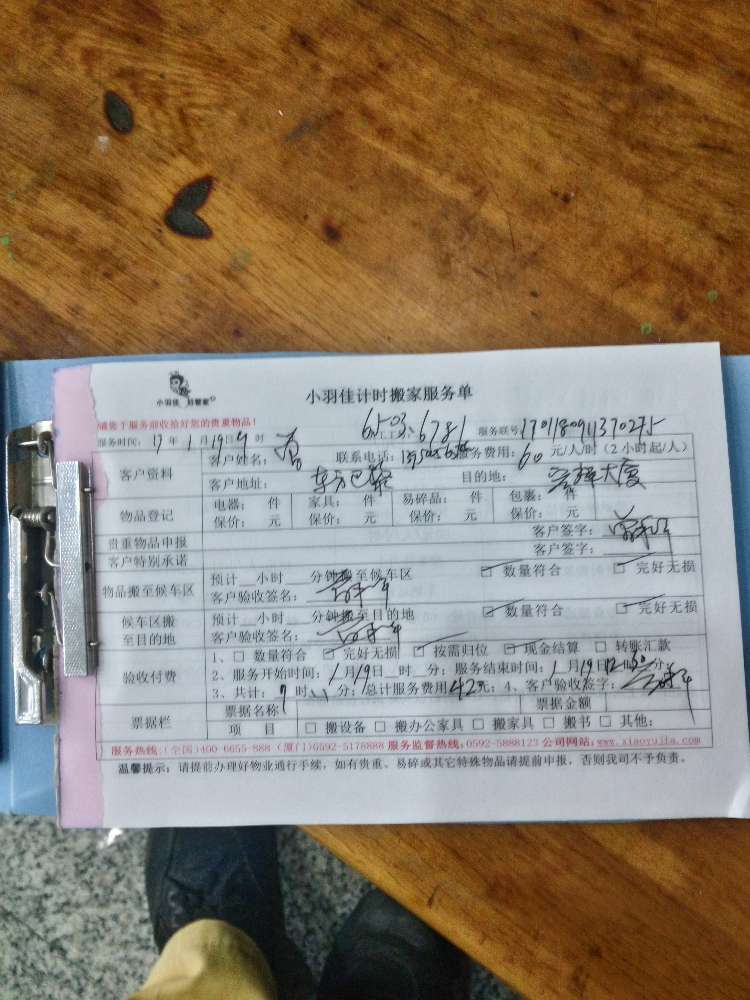 小羽佳 好管家
小羽佳计时搬家服务单
请您于服务前收拾好您的贵重物品!
6503、6781
服务时间: 17 年 1 月 19 日 9 时
服务联号: 1701180911370275
客户资料
客户姓名:
联系电话:
服务费用: 60 元/人/时 (2小时起/人)
客户地址: 东方巴黎
目的地: 大厦
物品登记
电器: 件 家具: 件 易碎品: 件 包裹: 件
保价: 元 保价: 元 保价: 元 保价: 元
贵重物品申报 客户签字:
客户特别承诺 客户签字:
物品搬至候车区
预计__小时__分钟搬至候车区 □ 数量符合 □ 完好无损
客户验收签名:
候车区搬至目的地
预计__小时__分钟搬至目的地 □ 数量符合 □ 完好无损
客户验收签名:
验收付费
1、□ 数量符合 □ 完好无损 □ 按需归位 □ 现金结算 □ 转账汇款
2、服务开始时间: 1 月 19 日__时__分; 服务结束时间: 1 月 19 日 12 时 30 分;
3、共计: 7 时 分; 总计服务费用 42 元; 4、客户验收签字:
票据栏
票据名称 票据金额
项 目 □ 搬设备 □ 搬办公家具 □ 搬家具 □ 搬书 □ 其他:
服务热线:(全国)400-6655-888 (厦门)0592-5178888 服务监督热线:0592-5888123 公司网站:www.xiaoyujia.com
温馨提示: 请提前办理好物业通行手续, 如有贵重、易碎或其它特殊物品请提前申报, 否则我司不予负责。